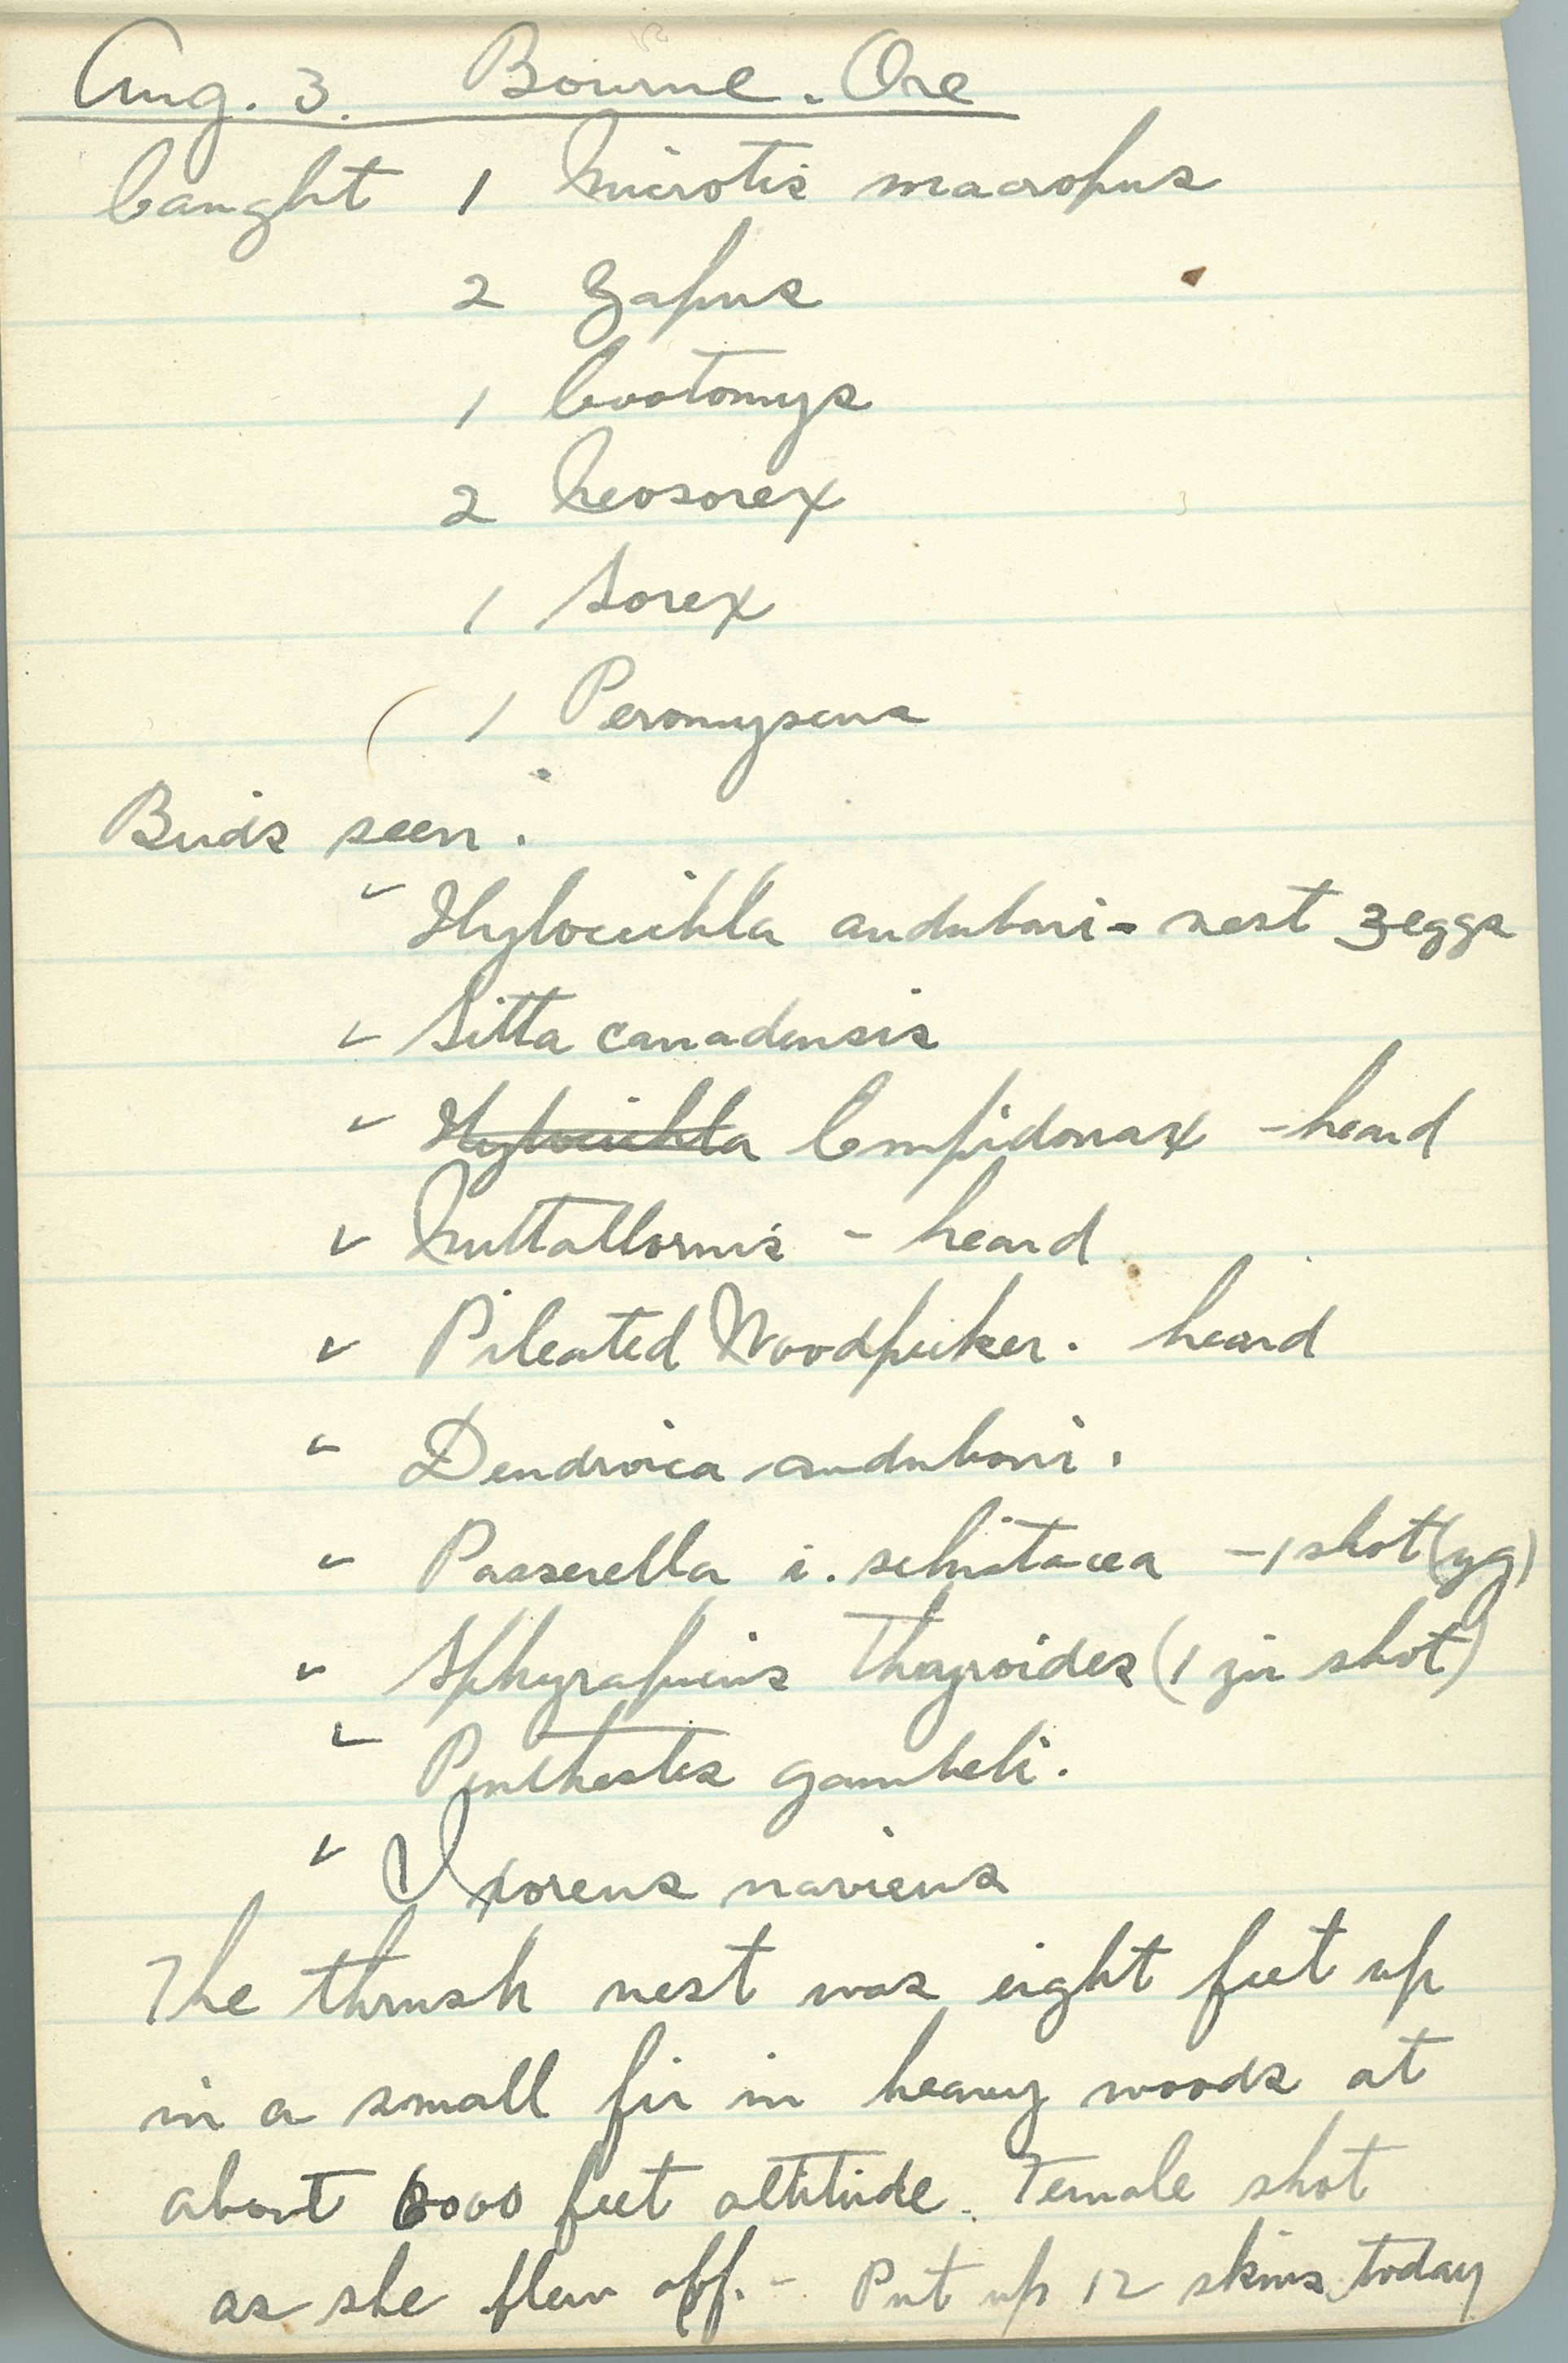 Aug. 3. Bourne. Ore
Caught 1 Microtis macropus
2 Zapus
1 Evotomys
2 Neosorex
1 Sorex
1 Peromyscus
Birds seen.
✓ Hylocichla auduboni - nest 3 eggs
✓ Sitta canadensis
✓ Hylocichla Empidonax - heard
✓ Nuttallornis - heard
✓ Pileated Woodpecker. heard
✓ Dendroica auduboni.
✓ Passerella i. schistacea - 1 shot (yg)
✓ Sphyrapicus thyroides (1 juv shot)
✓ Penthestes gambeli.
✓ Ixoreus naevieus
The thrush nest was eight feet up
in a small fir in heavy woods at
about 6000 feet altitude. Female shot
as she flew off. - Put up 12 skins today